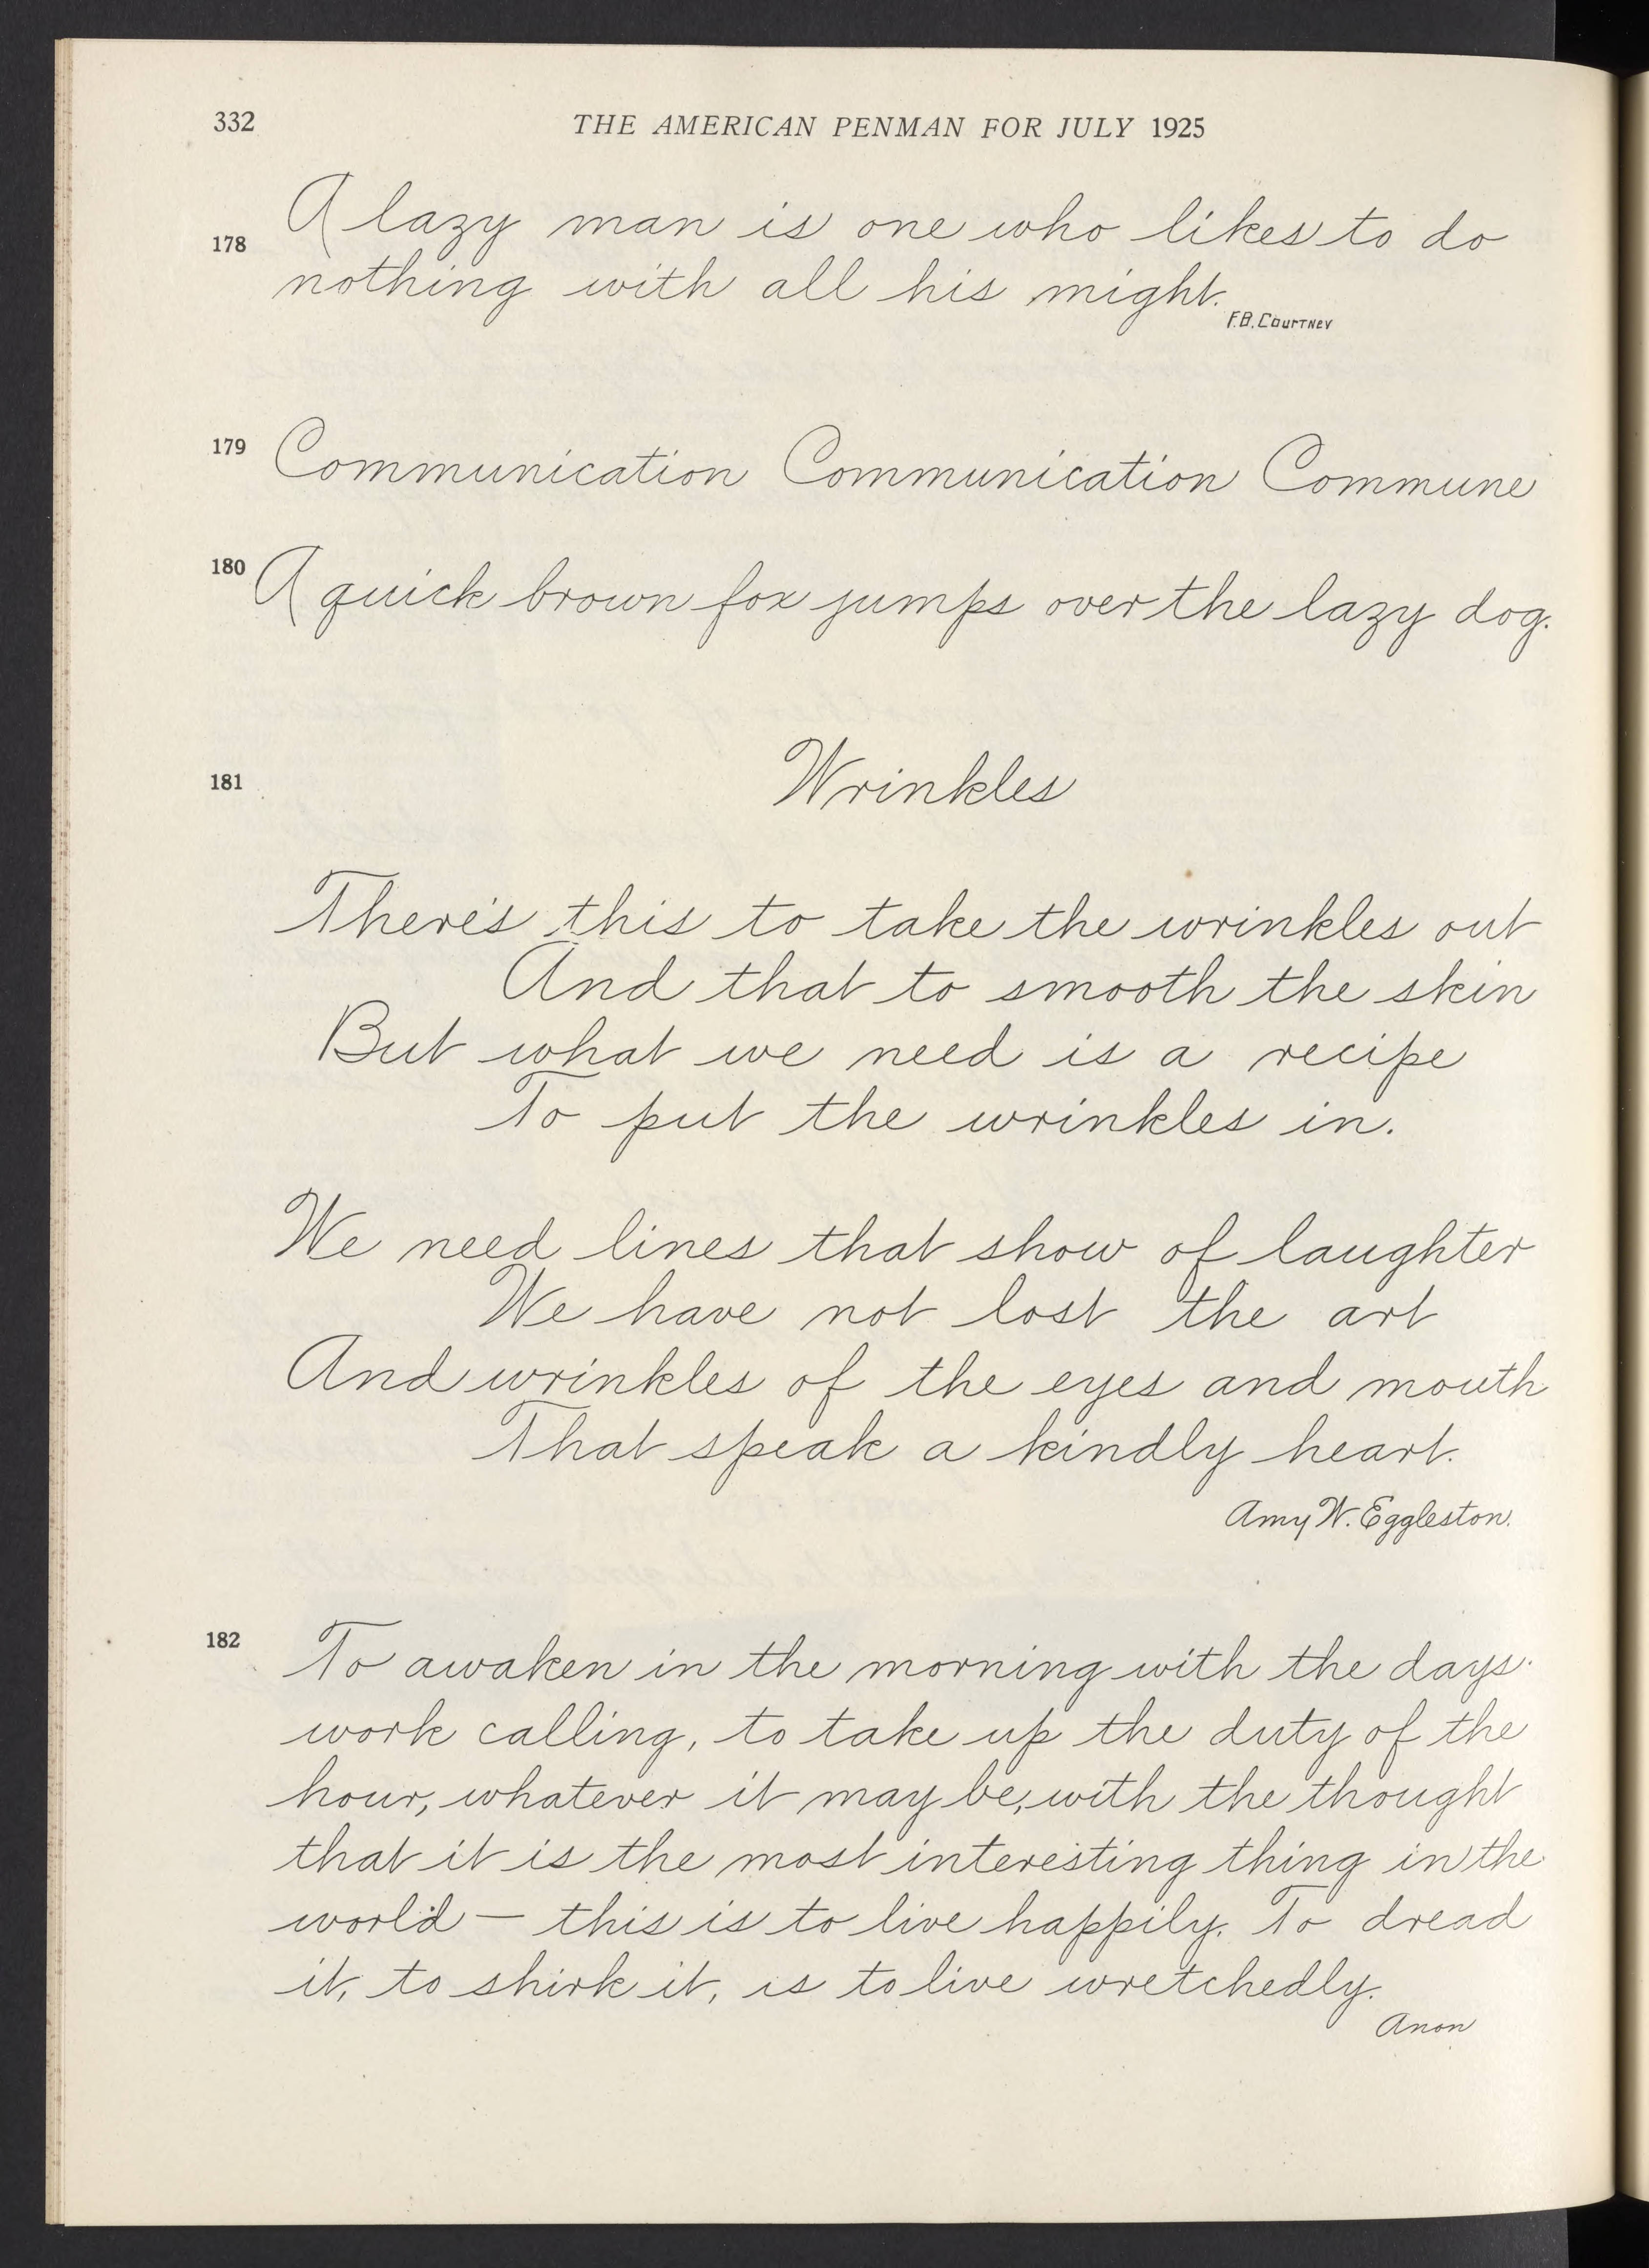 332
THE AMERICAN PENMAN FOR JULY 1925
178 A lazy man is one who likes to do
nothing with all his might.
F.B. Courtney
179 Communication Communication Commune
180 A quick brown fox jumps over the lazy dog.
181 Wrinkles
There's this to take the wrinkles out
And that to smooth the skin
But what we need is a recipe
To put the wrinkles in.
We need lines that show of laughter
We have not lost the art
And wrinkles of the eyes and mouth
That speak a kindly heart.
Amy W. Eggleston.
182 To awaken in the morning with the days
work calling, to take up the duty of the
hour, whatever it may be, with the thought
that it is the most interesting thing in the
world — this is to live happily. To dread
it, to shirk it, is to live wretchedly.
Anon